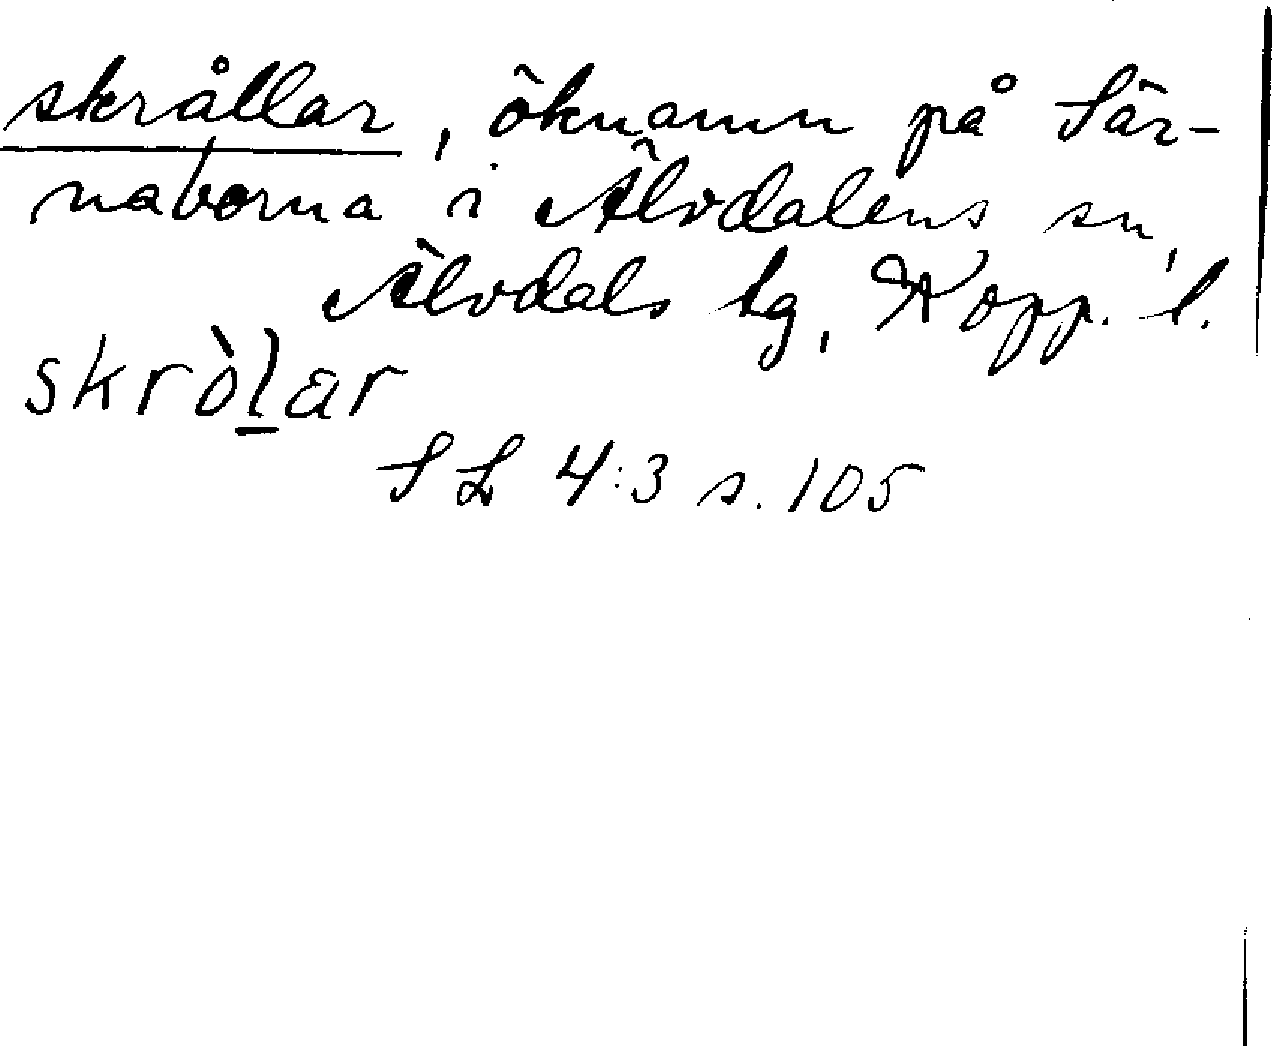 skrållar, öknamn på Sär-
naborna i Älvdalens sn,
Älvdals tg, Kopp. l.
skròl̲ar
SL 4:3 s. 105